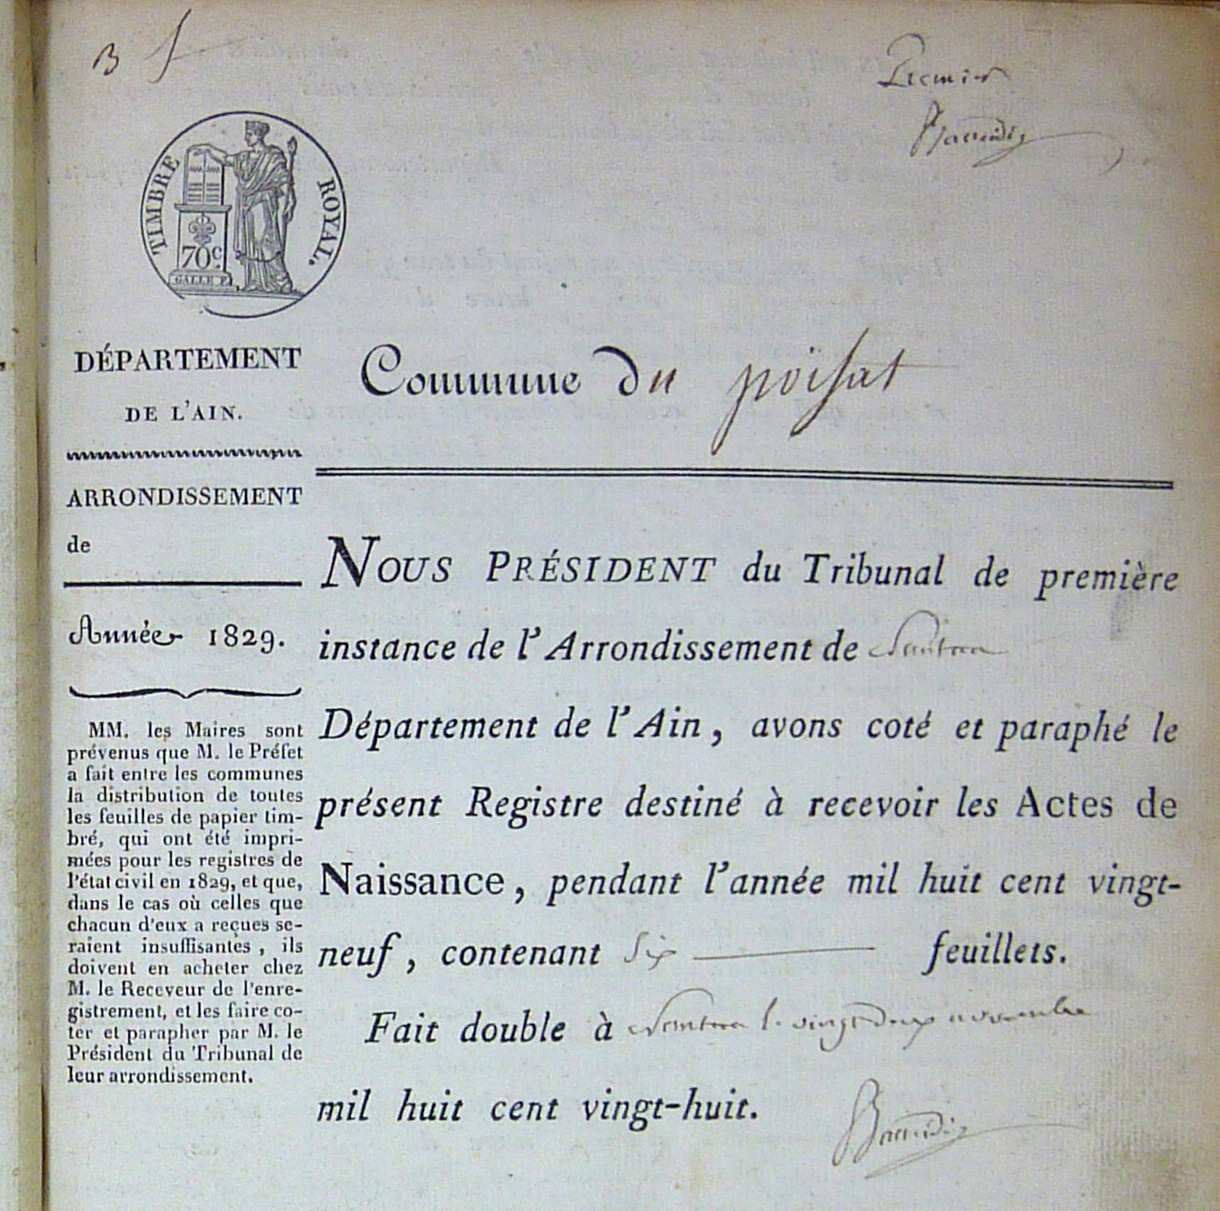 B f
Premier
TIMBRE ROYAL.
70c
GALLE F.
DÉPARTEMENT
DE L'AIN.
Commune du poisat
ARRONDISSEMENT
de
Année 1829.
MM. les Maires sont
prévenus que M. le Préfet
a fait entre les communes
la distribution de toutes
les feuilles de papier tim-
bré, qui ont été impri-
mées pour les registres de
l'état civil en 1829, et que,
dans le cas où celles que
chacun d'eux a reçues se-
raient insuffisantes, ils
doivent en acheter chez
M. le Receveur de l'enre-
gistrement, et les faire co-
ter et parapher par M. le
Président du Tribunal de
leur arrondissement.
NOUS PRÉSIDENT du Tribunal de première
instance de l'Arrondissement de Nantua
Département de l'Ain, avons coté et paraphé le
présent Registre destiné à recevoir les Actes de
Naissance, pendant l'année mil huit cent vingt-
neuf, contenant Six feuillets.
Fait double à Nantua le vingt deux novembre
mil huit cent vingt-huit.